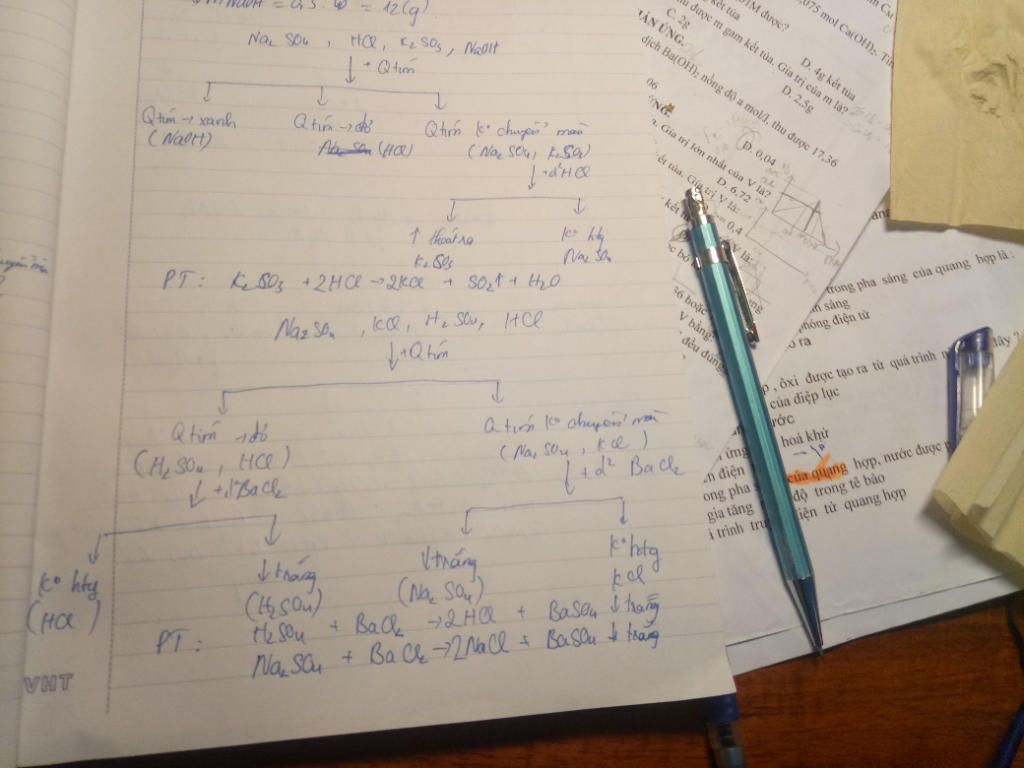 mNaOH = 0,3. 40 = 12 (g)
Na2 SO4 , HCl, K2 SO3, NaOH
↓ + Qtím
Qtím → xanh
(NaOH)
Qtím → đỏ
(HCl)
Qtím K° chuyển màu
(Na2 SO4, K2SO3)
↓ +d² HCl
↑ thoát ra
K2SO3
K° htg
Na2 SO4
PT: K2SO3 + 2HCl → 2KCl + SO2↑ + H2O
Na2SO4 , KCl, H2SO4, HCl
↓ + Qtím
Qtím → đỏ
(H2SO4 , HCl)
↓ +d² BaCl2
Qtím K° chuyển màu
(Na2SO4 , KCl)
↓ + d² BaCl2
K° htg
(HCl)
↓ trắng
(H2SO4)
↓ trắng
(Na2 SO4)
K° htg
KCl
PT: H2SO4 + BaCl2 → 2HCl + BaSO4 ↓ trắng
Na2SO4 + BaCl2 → 2NaCl + BaSO4 ↓ trắng
VHT
,075 mol Ca(OH)2. Tín
1M được?
kết tủa
D. 4g kết tủa
hu được m gam kết tủa. Giá trị của m là?
C. 2g
D. 2,5g
ẢN ỨNG.
dịch Ba(OH)2 nồng độ a mol/l, thu được 17,36
06
D. 0,04
Giá trị lớn nhất của V là?
D. 6,72
kết tủa. Giá trị V là:
0,4
V là:
36 hoặc
V bằng:
đều đúng
trong pha sáng của quang hợp là :
sáng
phóng điện tử
o ra
, ôxi được tạo ra từ quá trình
đây ?
của diệp lục
ước
hoá khử
điện
của quang hợp, nước được
ong pha
gia tăng
độ trong tế bào
trình
điện tử quang hợp